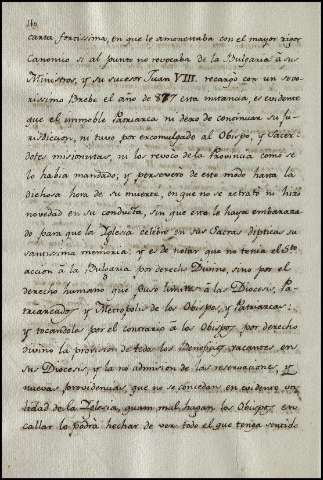 110.
carta fortissima, en que le amonestaba con el mayor rigor
Canonico si al punto no revocaba de la Bulgaria à sus
Ministros, y su sucesor Juan VIII. recargò con un seve-
rissimo Brebe el año de 877 esta instancia, es evidente
que el inmoble Patriarca ni dexo de continuar su Ju-
risdiccion, ni tuvo por excomulgado al Obispo, y Sacer-
dotes misionistas, ni los revocò de la Provincia como se
lo habia mandado, y perseverò de este modo hasta la
dichosa hora de su muerte, en que no se retratò ni hizo
novedad en su conducta, sin que esto le haya embaraza-
do para que la Yglesia celebre en sus Sacras dipticas su
santissima memoria, y es de notar que no tenia el Sto.
accion à la Bulgaria por derecho Divino, sino por el
derecho humano que puso limites à las Diocesis, Pa-
triarcados y Metropolis de los Obispos, y Patriarcas:
y tocandoles por el contrario à los Obispos por derecho
divino la provision de todos los Beneficios vacantes en
sus Diocesis, y la no admision de las reservaciones, y
nuevas providencias, que no se concedan en evidente uti-
lidad de la Yglesia, quam mal hagan los Obispos en
callar lo podrà hechar de ver todo el que tenga sentido